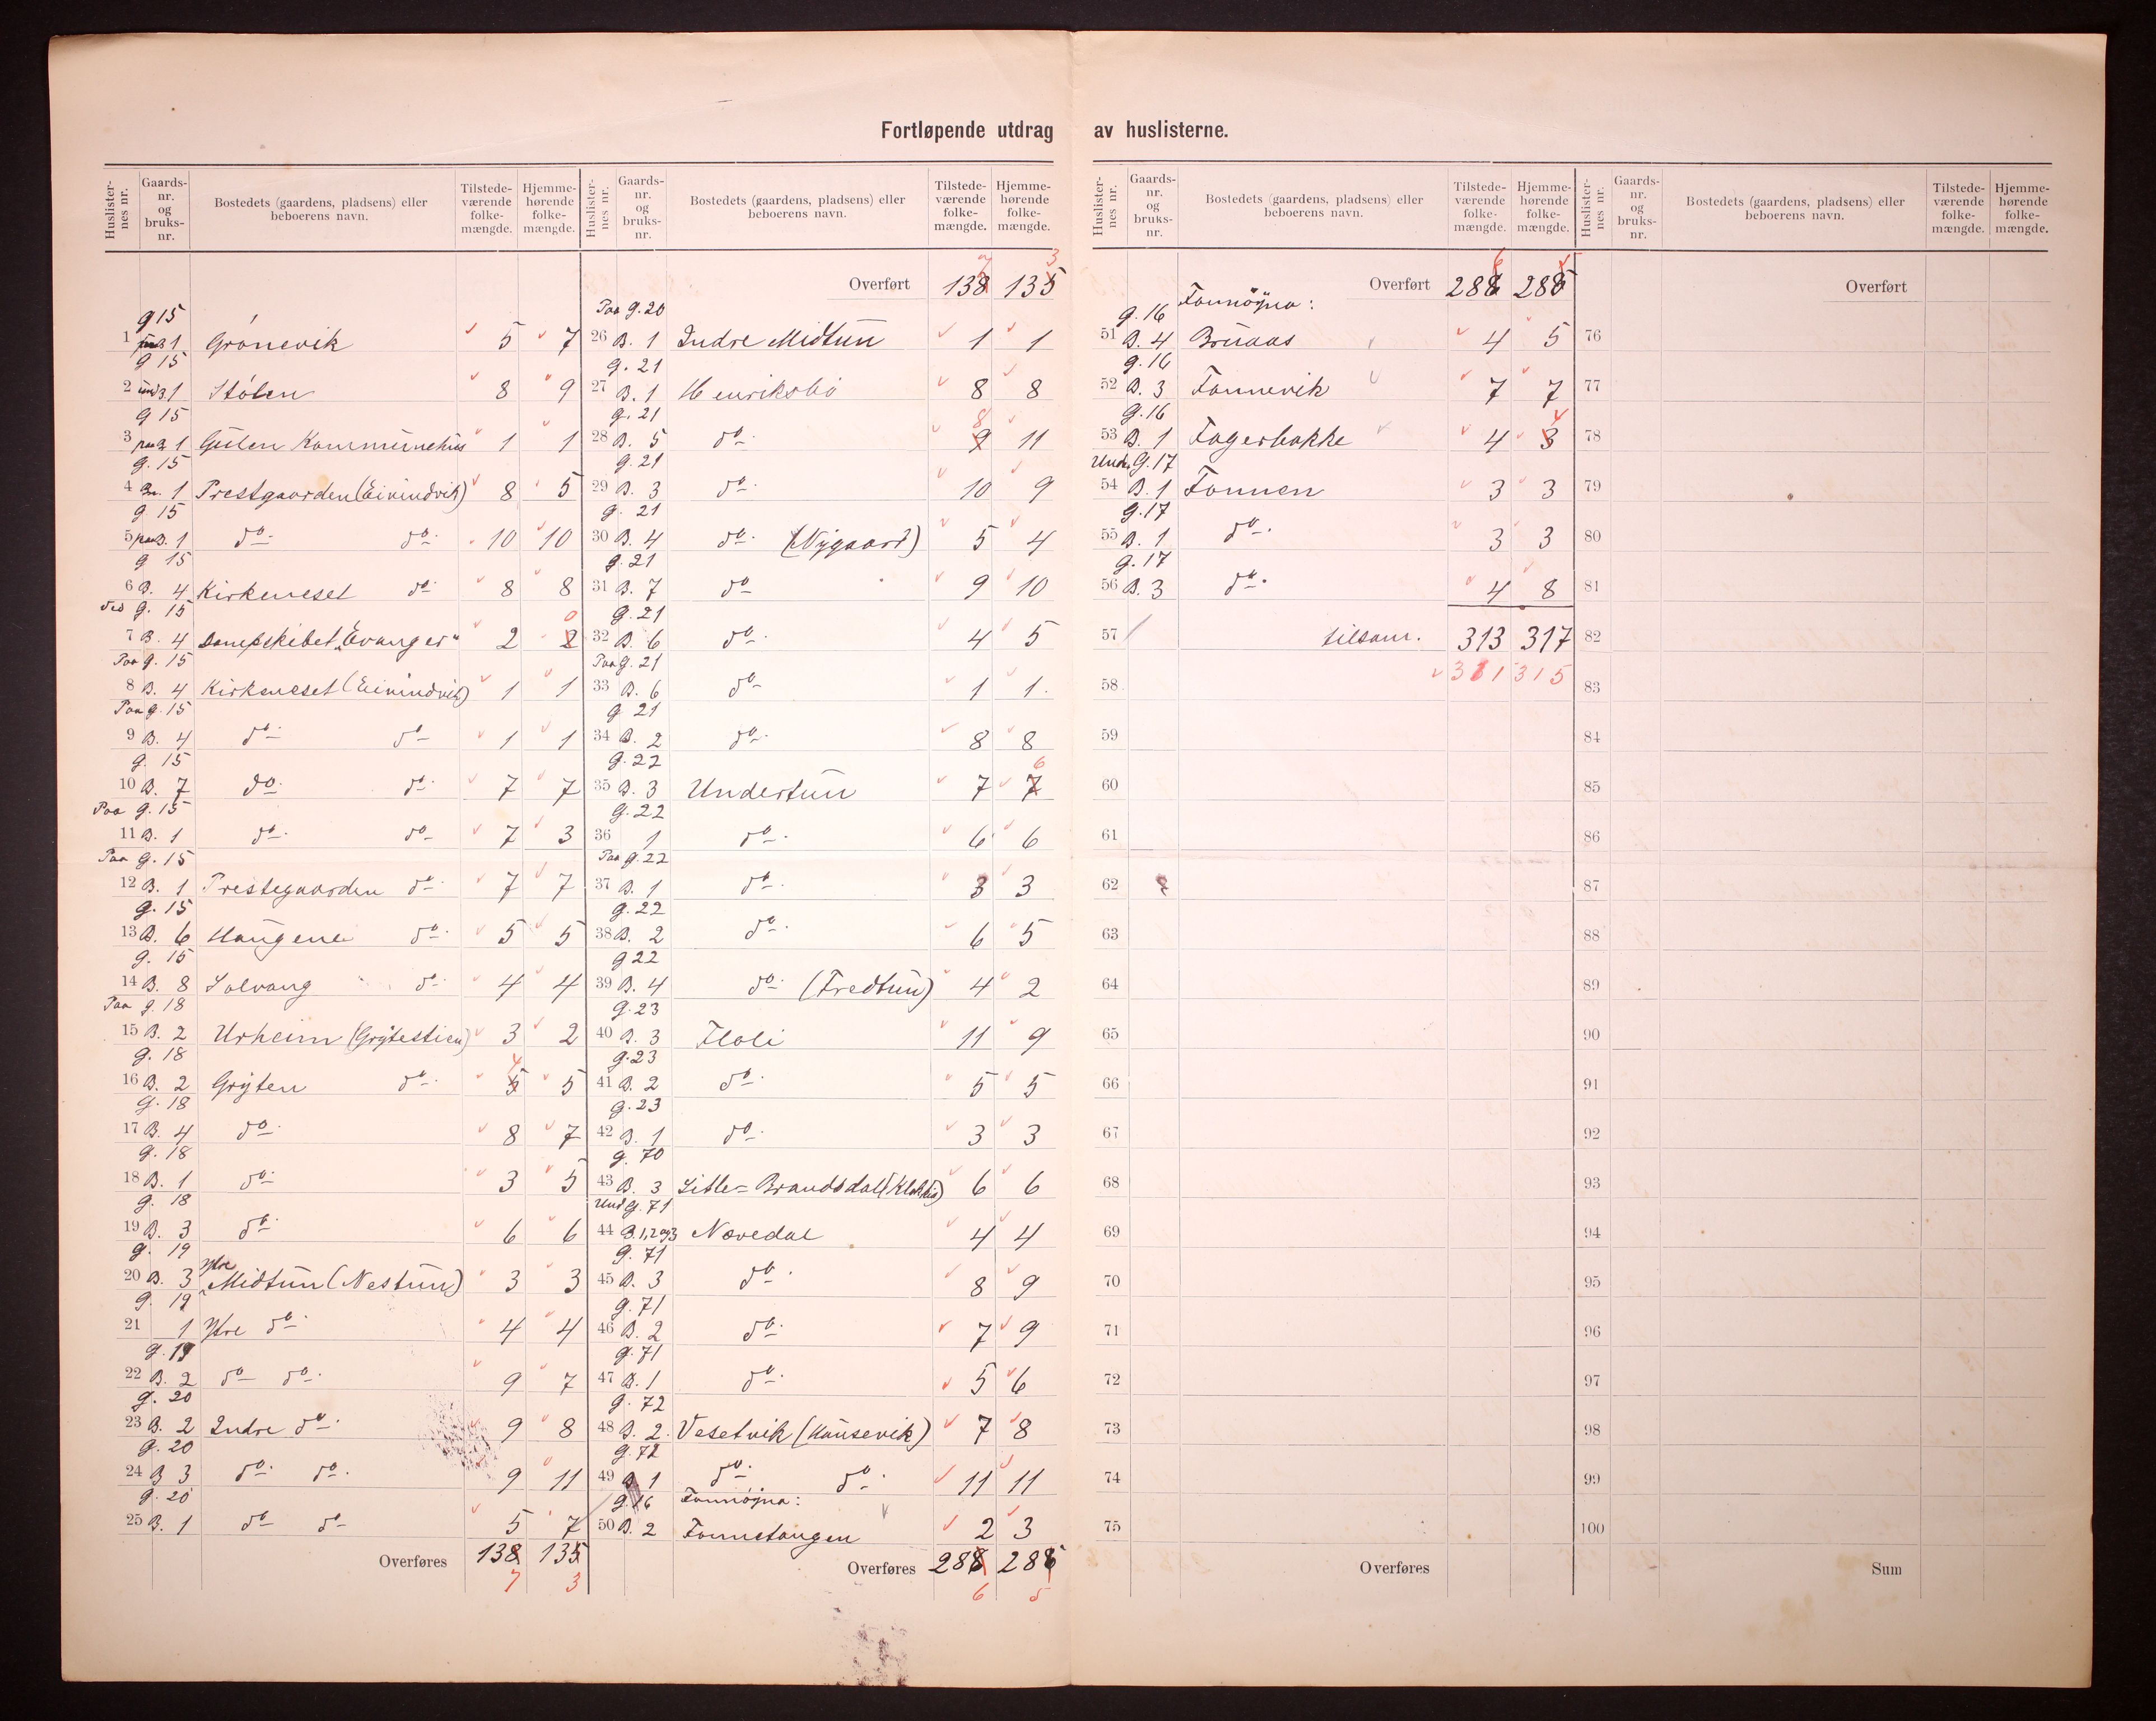 Fortløpende utdrag av huslisterne.
Huslister-nes nr. | Gaards-nr. og bruks-nr. | Bostedets (gaardens, pladsens) eller beboerens navn. | Tilstede-værende folke-mængde. | Hjemme-hørende folke-mængde.
g 15
1 B 1 Grønevik 5 7
g 15
2 und B 1 Stølen 8 9
g 15
3 paa B 1 Gulen Kommunehus 1 1
g. 15
4 Bn. 1 Prestgaarden (Eivindvik) 8 5
g. 15
5 paa B. 1 do. do. 10 10
g 15
6 B. 4 Kirkeneset do 8 8
ved g. 15 0
7 B. 4 Dampskibet „Evanger" 2 2
Paa g. 15
8 B. 4 Kirkeneset (Eivindvik) 1 1
Paa g. 15
9 B. 4 do. do 1 1
g. 15
10 B. 7 do. do. 7 7
Paa g. 15
11 B. 1 do. do 7 3
Paa g. 15
12 B. 1 Prestegaarden do. 7 7
g. 15
13 B. 6 Haugene do. 5 5
g. 15
14 B. 8 Solvang do. 4 4
Paa g. 18
15 B. 2 Urheim (Grytestien) 3 2
g. 18 4
16 B. 2 Gryten do. 5 5
g. 18
17 B. 4 do. 8 7
g. 18
18 B. 1 do. 3 5
g. 18
19 B. 3 do. 6 6
g. 19 Ytre
20 B. 3 Midtun (Nestun) 3 3
g. 19
21 1 Ytre do. 4 4
g. 19
22 B. 2 do do. 9 7
g. 20
23 B. 2 Indre do. 9 8
g. 20
24 B 3 do. do. 9 11
g. 20
25 B. 1 do do 5 7
Overføres 138 135
7 3
Huslister-nes nr. | Gaards-nr. og bruks-nr. | Bostedets (gaardens, pladsens) eller beboerens navn. | Tilstede-værende folke-mængde. | Hjemme-hørende folke-mængde.
7 3
Overført 138 135
Paa g. 20
26 B. 1 Indre Midtun 1 1
g. 21
27 B. 1 Henriksbø 8 8
g. 21 8
28 B. 5 do. 9 11
g. 21
29 B. 3 do. 10 9
g. 21
30 B. 4 do. (Nygaard) 5 4
g. 21
31 B. 7 do 9 10
g. 21
32 B. 6 do. 4 5
Paa g. 21
33 B. 6 do 1 1.
g 21
34 B. 2 do. 8 8
g. 22 6
35 B. 3 Undertun 7 7
g. 22
36 1 do. 6 6
Paa g. 22
37 B. 1 do. 3 3
g. 22
38 B. 2 do. 6 5
g 22
39 B. 4 do. (Fredtun) 4 2
g. 23
40 B. 3 Floli 11 9
g. 23
41 B. 2 do. 5 5
g. 23
42 B. 1 do. 3 3
g. 70
43 B. 3 Litle=Brandsdal 6 6
Und g. 71
44 B. 1, 2 og 3 Novedal 4 4
g. 71
45 B. 3 do. 8 9
g. 71
46 B. 2 do. 7 9
g. 71
47 B. 1 do. 5 6
g. 72
48 B. 2. Vesetvik (Hausevik) 7 8
g. 72
49 B 1 do. do. 11 11
g. 16 Fonnøyna:
50 B. 2 Fonnetangen 2 3
Overføres 288 286
6 5
Huslister-nes nr. | Gaards-nr. og bruks-nr. | Bostedets (gaardens, pladsens) eller beboerens navn. | Tilstede-værende folke-mængde. | Hjemme-hørende folke-mængde.
Overført 288 286
g. 16 Fonnøyna:
51 B. 4 Bruaas 4 5
g. 16
52 B. 3 Fonnevik 7 7
g. 16 4
53 B. 1 Fagerbakke 4 3
Und. g. 17
54 B. 1 Fonnen 3 3
g. 17
55 B. 1 do. 3 3
g. 17
56 B. 3 do. 4 8
57 tilsam. 313 317
58 311 315
59
60
61
62
63
64
65
66
67
68
69
70
71
72
73
74
75
Overføres
Huslister-nes nr. | Gaards-nr. og bruks-nr. | Bostedets (gaardens, pladsens) eller beboerens navn. | Tilstede-værende folke-mængde. | Hjemme-hørende folke-mængde.
Overført
76
77
78
79
80
81
82
83
84
85
86
87
88
89
90
91
92
93
94
95
96
97
98
99
100
Sum